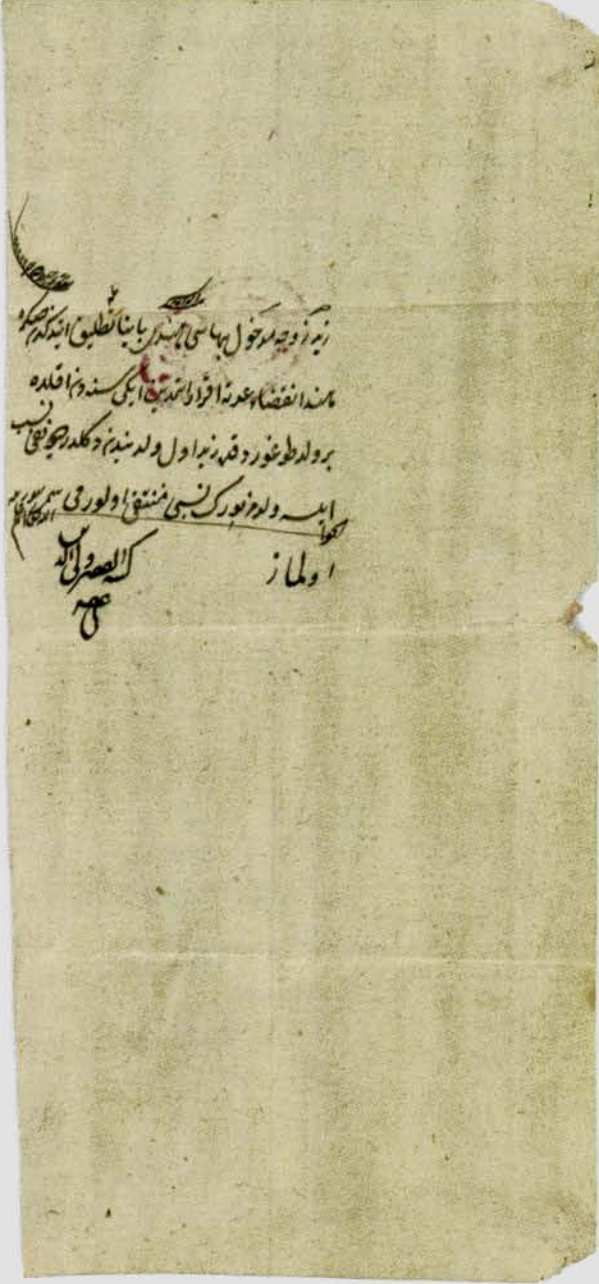 زيد زوجهٔ مدخول بهاسى هندى باينا تطليق ايتدكدنصكره
هند انقضاء عدته اقرار اتمدين ايكى سنه دن اقلده
بر ولد طوغوردقده زيد اول ولد بندن دكلدر ديو نفى نسب
ايلسه ولد مزبورك نسبى منتفى اولورمى
الجواب
اولماز
كتبه الفقير ولى الدين
عفى عنه